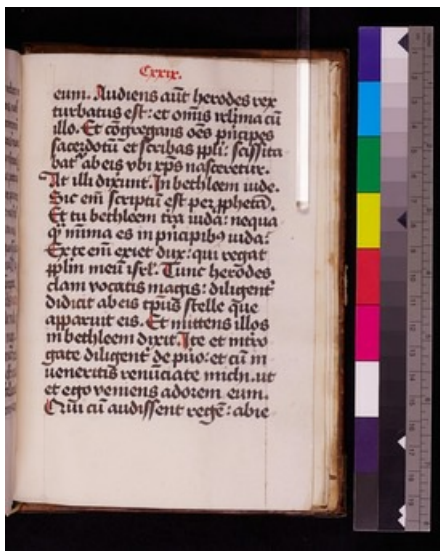 Cxxix.
eum. Audiens aūt herodes rex
turbatus est: et omīs irl̄ima cū
illo. Et cōgregans oēs pncipes
sacerdotū et scribas ppli: scissita
bat᷑ ab eis vbi xp̄s nasceretur.
At illi dixunt. In bethleem iude.
Sic em̄ scriptū est per pphetā.
Et tu bethleem t̄ra iuda: nequa
q̄ mīima es in pncipibꝰ iuda:
Ex te em̄ exiet dux: qui regat
pplm̄ meū isrl̄. Tunc herodes
clam vocatis magis: diligent᷑
didicit ab eis tp̄us stelle que
apparuit eis. Et mittens illos
in bethleem dixit. Ite et intro
gate diligent᷑ de puo: et cū in
ueneritis renūciate michi. ut
et ego veniens adorem eum.
Qui cū audissent regē: abie